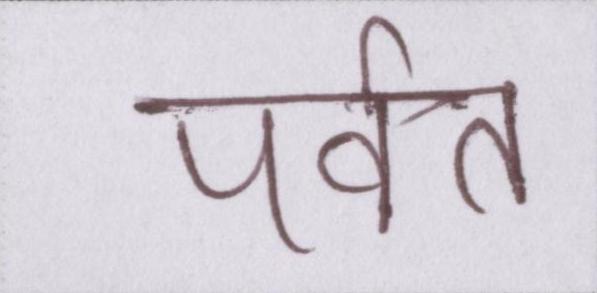 पर्वत